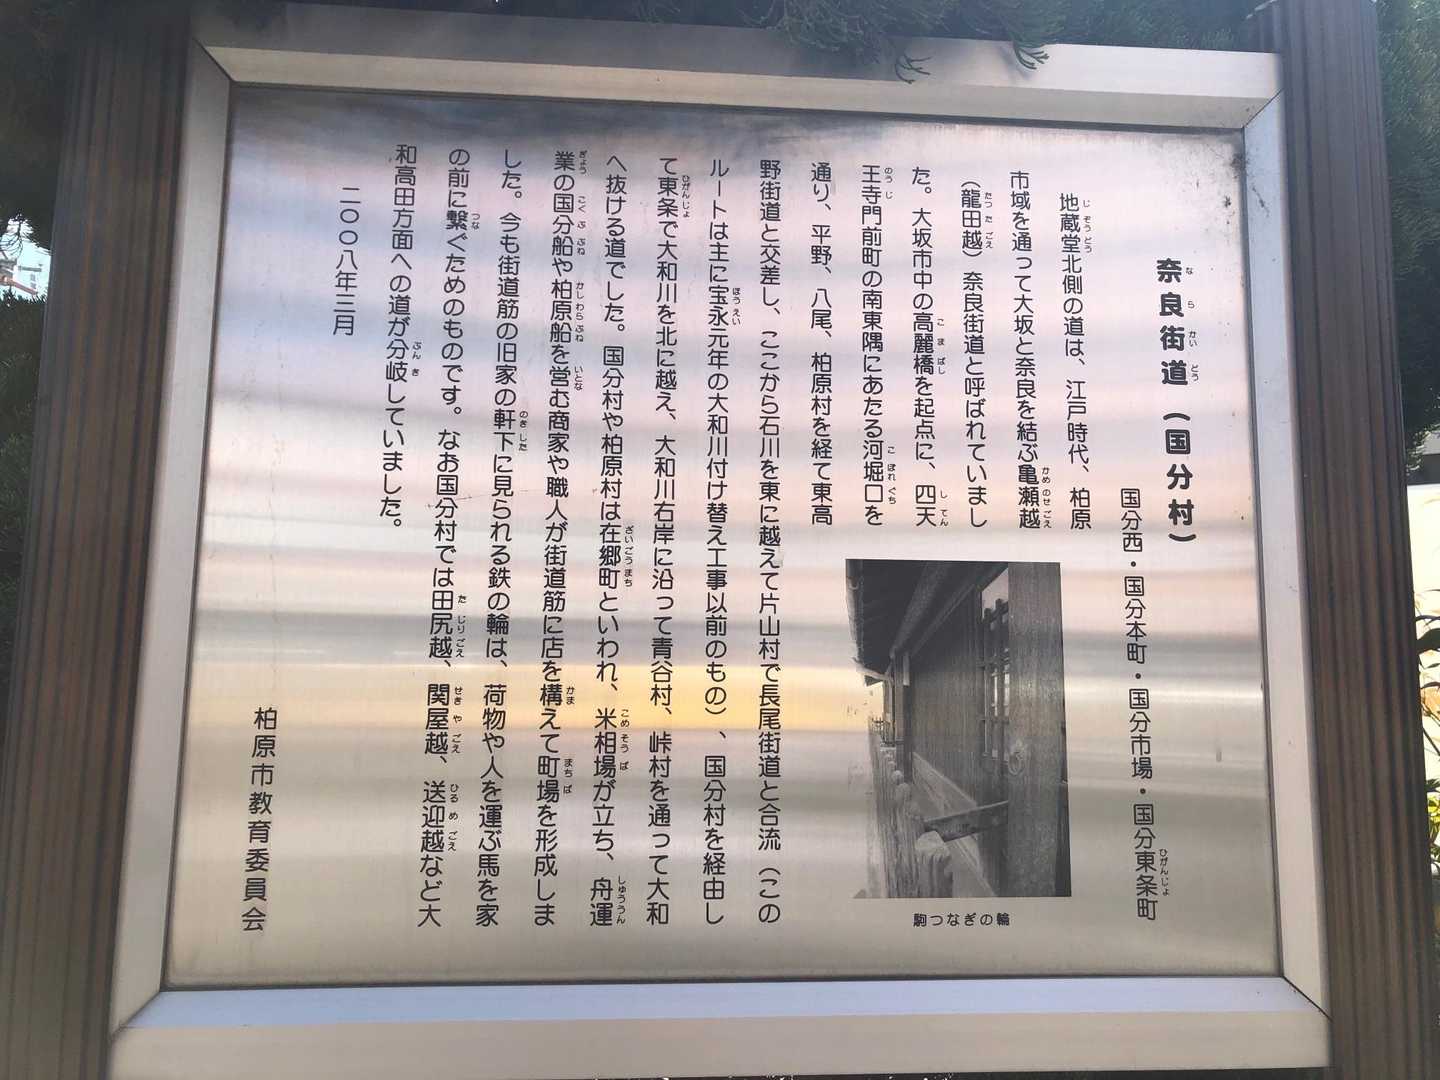 奈良街道(国分村)
国分西・国分本町・国分市場・国分東条町
地蔵堂北側の道は、江戸時代、柏原
市域を通って大坂と奈良を結ぶ亀瀬越
(龍田越)奈良街道と呼ばれていまし
た。大坂市中の高麗橋を起点に、四天
王寺門前町の南東隅にあたる河堀口を
通り、平野、八尾、柏原村を経て東高
野街道と交差し、ここから石川を東に越えて片山村で長尾街道と合流(この
ルートは主に宝永元年の大和川付け替え工事以前のもの)、国分村を経由し
て東条で大和川を北に越え、大和川右岸に沿って青谷村、峠村を通って大和
へ抜ける道でした。国分村や柏原村は在郷町といわれ、米相場が立ち、舟運
業の国分船や柏原船を営む商家や職人が街道筋に店を構えて町場を形成しま
した。今も街道筋の旧家の軒下に見られる鉄の輪は、荷物や人を運ぶ馬を家
の前に繋ぐためのものです。なお国分村では田尻越、関屋越、送迎越など大
和高田方面への道が分岐していました。
二〇〇八年三月
柏原市教育委員会
駒つなぎの輪